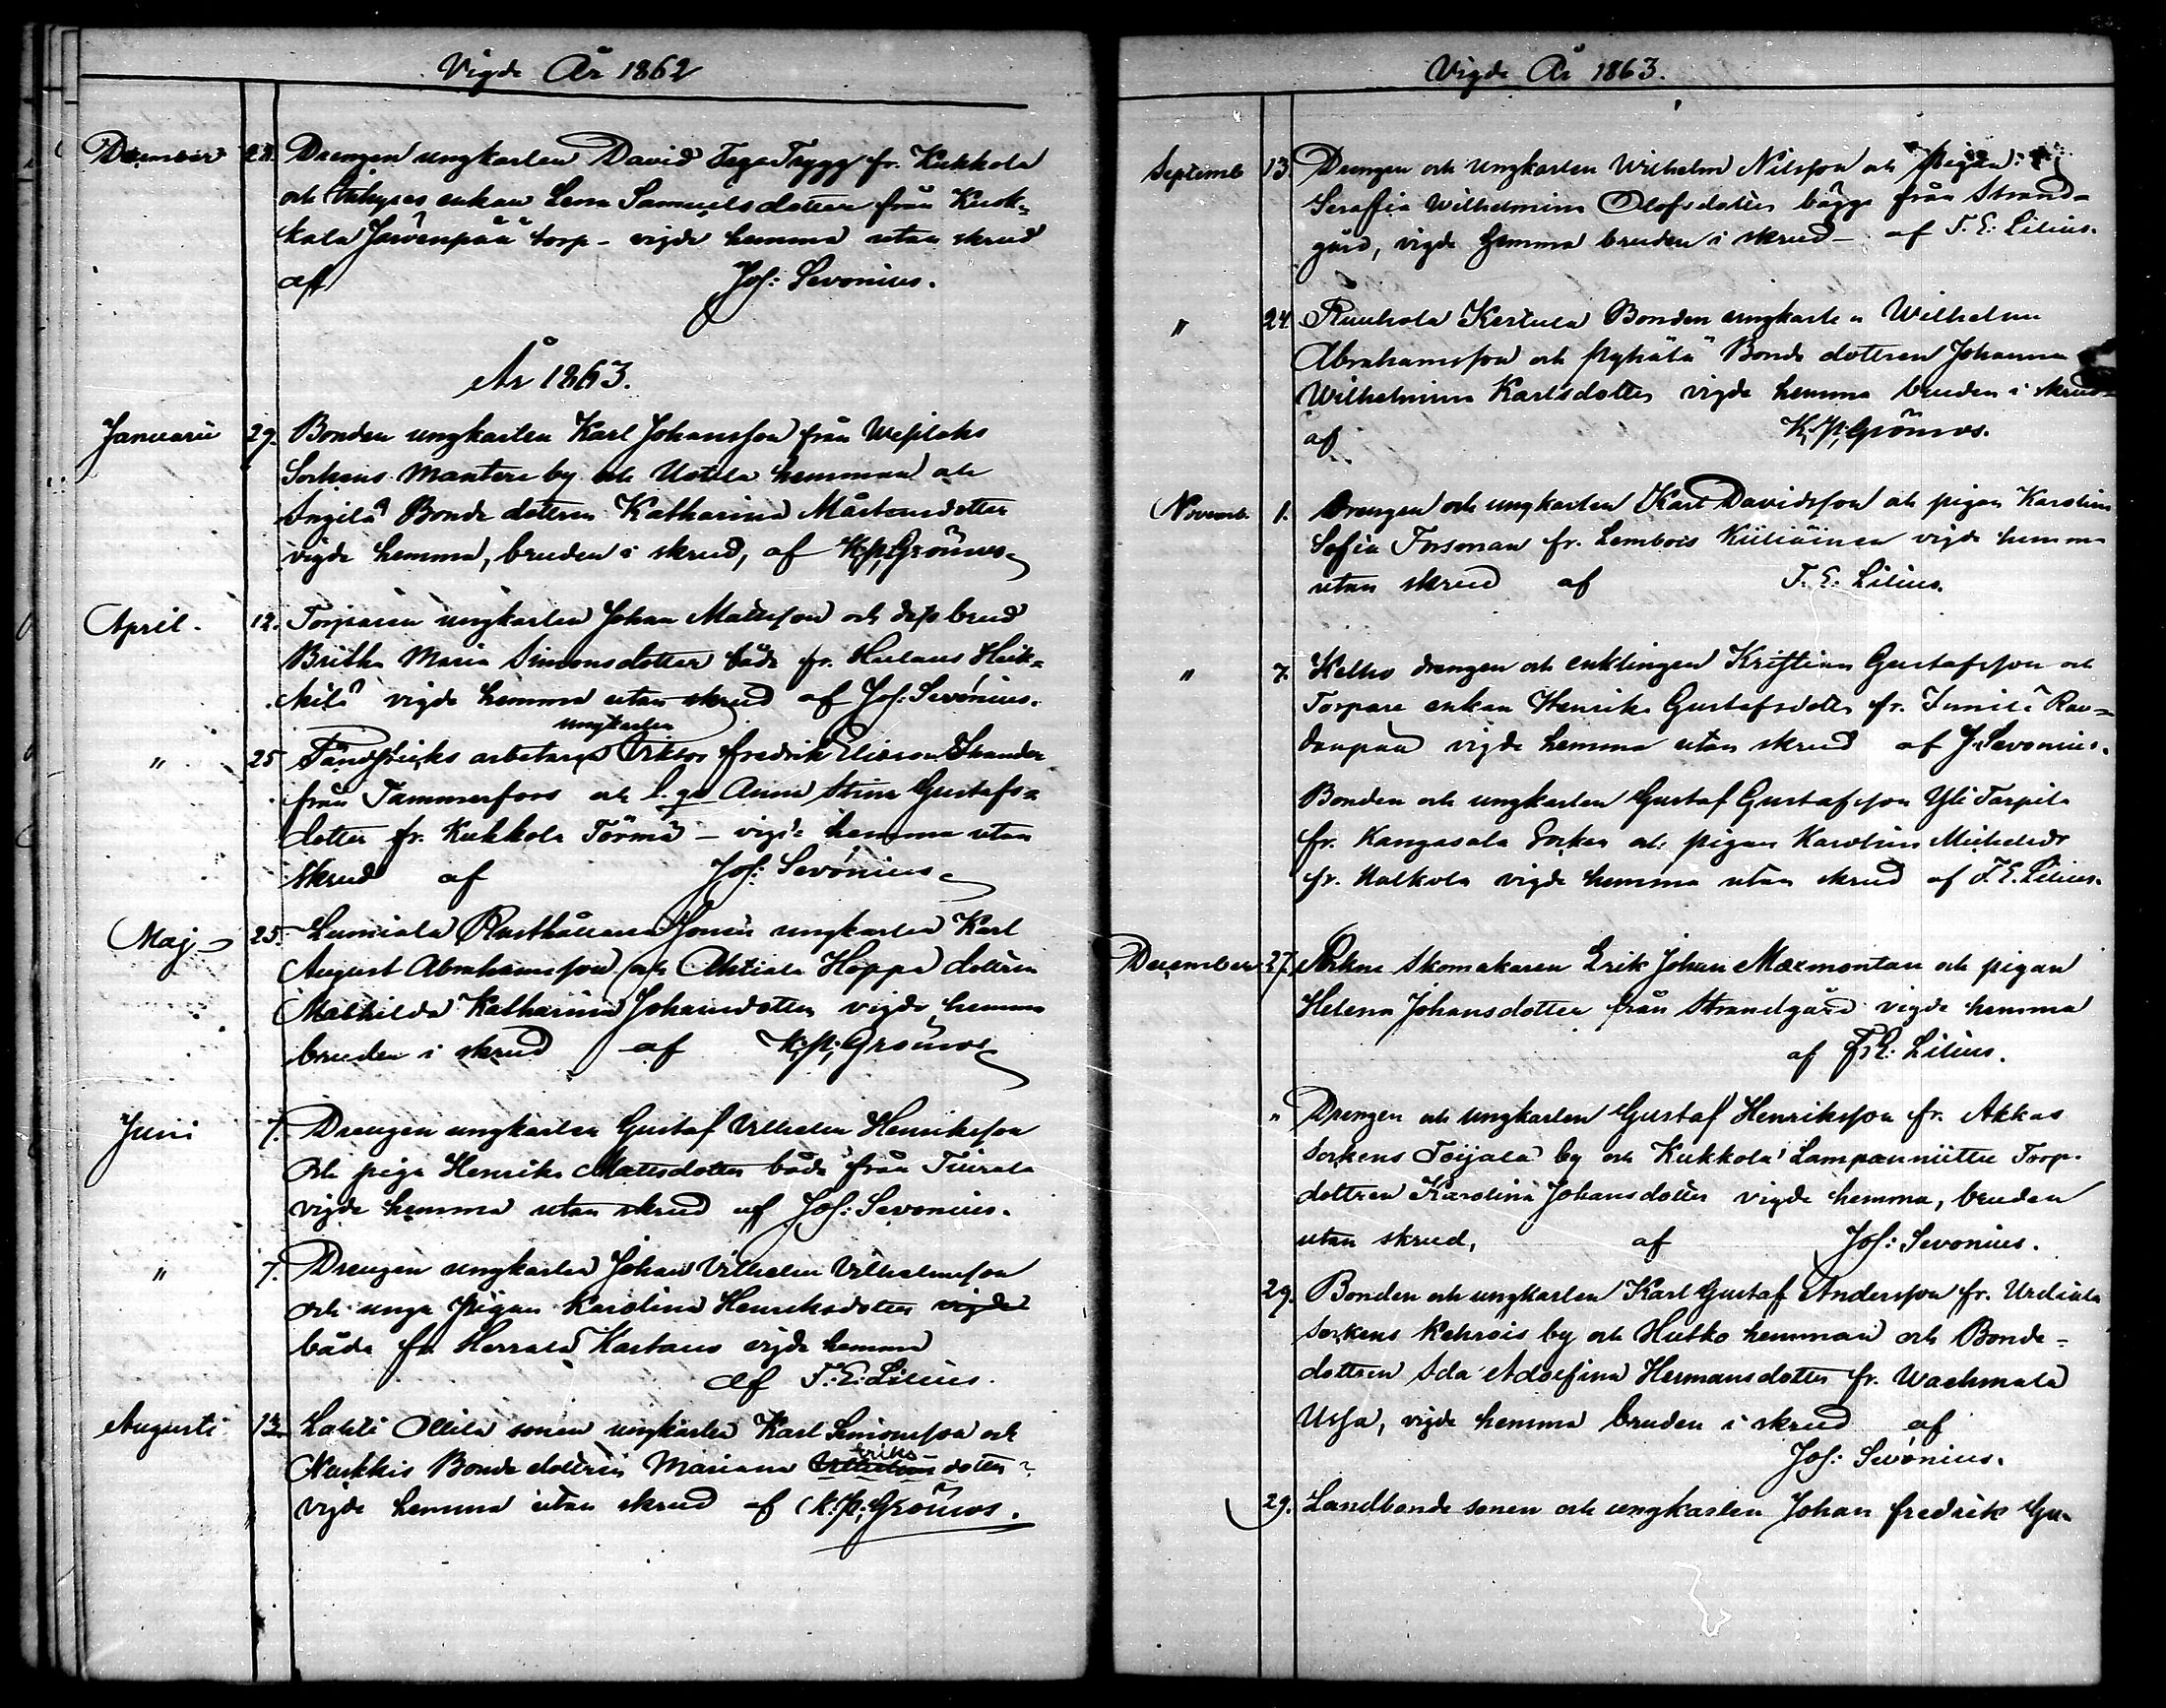 Vigde År 1862
December 28. Drengen ungkarlen David Trygg fr. Kukkola
och Inhyses enkan Lena Samuelsdotter från Kuk-
kola Jäwenpää torp - vigde hemma utan skrud
af Jos: Sevonius.
År 1863.
Januarii 29. Bonden ungkarlen Karl Johansson från Wesilaks
Sockens Mantere by och Uotila hemman och
Angila Bonde dottren Katharina Mårtensdotter
vigde hemma, bruden i skrud, af K. P. Grönroos
April. 12. Torparen ungkarlen Johan Mattsson och dess brud
Britha Maria Simonsdotter både fr. Hulaus Heik-
kilä vigde hemma utan skrud af Jos: Sevonius.
ungkarlen
" 25 arbetaren Viktor Fredrik Eliasson
från Tammerfors och Anna Stina Gustafs-
dotter fr. Kukkola Törmä - vigde hemma utan
skrud af Jos: Sevonius
Maj 25. Lumiala Rusthållare Sonen ungkarlen Karl
August Abrahamsson och Ahtiala Hoppa dottren
Mathilda Katharina Johansdotter vigde hemma
bruden i skrud af K. P. Grönroos
Juni 7. Drengen ungkarlen Gustaf Vilhelm Henriksson
och piga Henrika Mattsdotter både från Tiirala
vigde hemma utan skrud af Jos: Sevonius.
" 7. Drengen ungkarlen Johan Vilhelm Vilhelmsson
och unga pigan Karolina Henriksdotter vigde
båda fr. Herrala Kartano vigde hemma
af F. E. Lilius.
Augusti 13. Lahti Ollila sonen ungkarlen Karl Simonsson och
Eriks
Nuukkis Bonde dottren Mariana Vilhelms dotter
vigde hemma utan skrud af K. P. Grönroos.
Vigde År 1863.
Septemb 13. Drengen och Ungkarlen Wilhelm Nilsson och Pigan
Serafia Wilhelmina Olofsdotter bägge från Strand-
gård, vigde hemma bruden i skrud - af F. E. Lilius.
" 24. Ruuhola Kertula Bonden ungkarlen Wilhelm
Abrahamsson och Pyhältö Bonde dottren Johanna
Wilhelmina Karlsdotter vigde hemma bruden i skrud
af K. P. Grönroos.
Novemb. 1. Drengen och ungkarlen Karl Davidsson och pigan Karolina
Sofia Forsman fr. Lembois Kiiliäinen vigde hemma
utan skrud af F. E. Lilius.
" 7. Kelho drengen och enklingen Kristian Gustafsson och
Torpare enkan Henrika Gustafsdotter fr. Innilä Rau-
danpää vigde hemma utan skrud af J. Sevonius.
Bonden och ungkarlen Gustaf Gustafsson Yli Tarpila
fr. Kangasala Socken och pigan Karolina Michelsdr
fr. Nalkola vigde hemma utan skrud af F. E. Lilius.
December 27. Sockne Skomakaren Erik Johan Maxmontan och pigan
Helena Johansdotter från Strandgård vigde hemma
af F. E. Lilius.
" Drengen och ungkarlen Gustaf Henriksson fr. Akkas
Sockens Toijala by och Kukkola Lampenniittu Torp.
dottren Karolina Johansdotter vigde hemma, bruden
utan skrud, af Jos: Sevonius.
29. Bonden och ungkarlen Karl Gustaf Andersson fr. Urdiala
Sockens Kehrois by och Hutko hemman och Bonde-
dottren Ada Adolfina Hermansdotter fr. Wachmala
Ussa, vigde hemma bruden i skrud af
Jos: Sevonius.
29. Landbonde sonen och ungkarlen Johan Fredrik Gu-